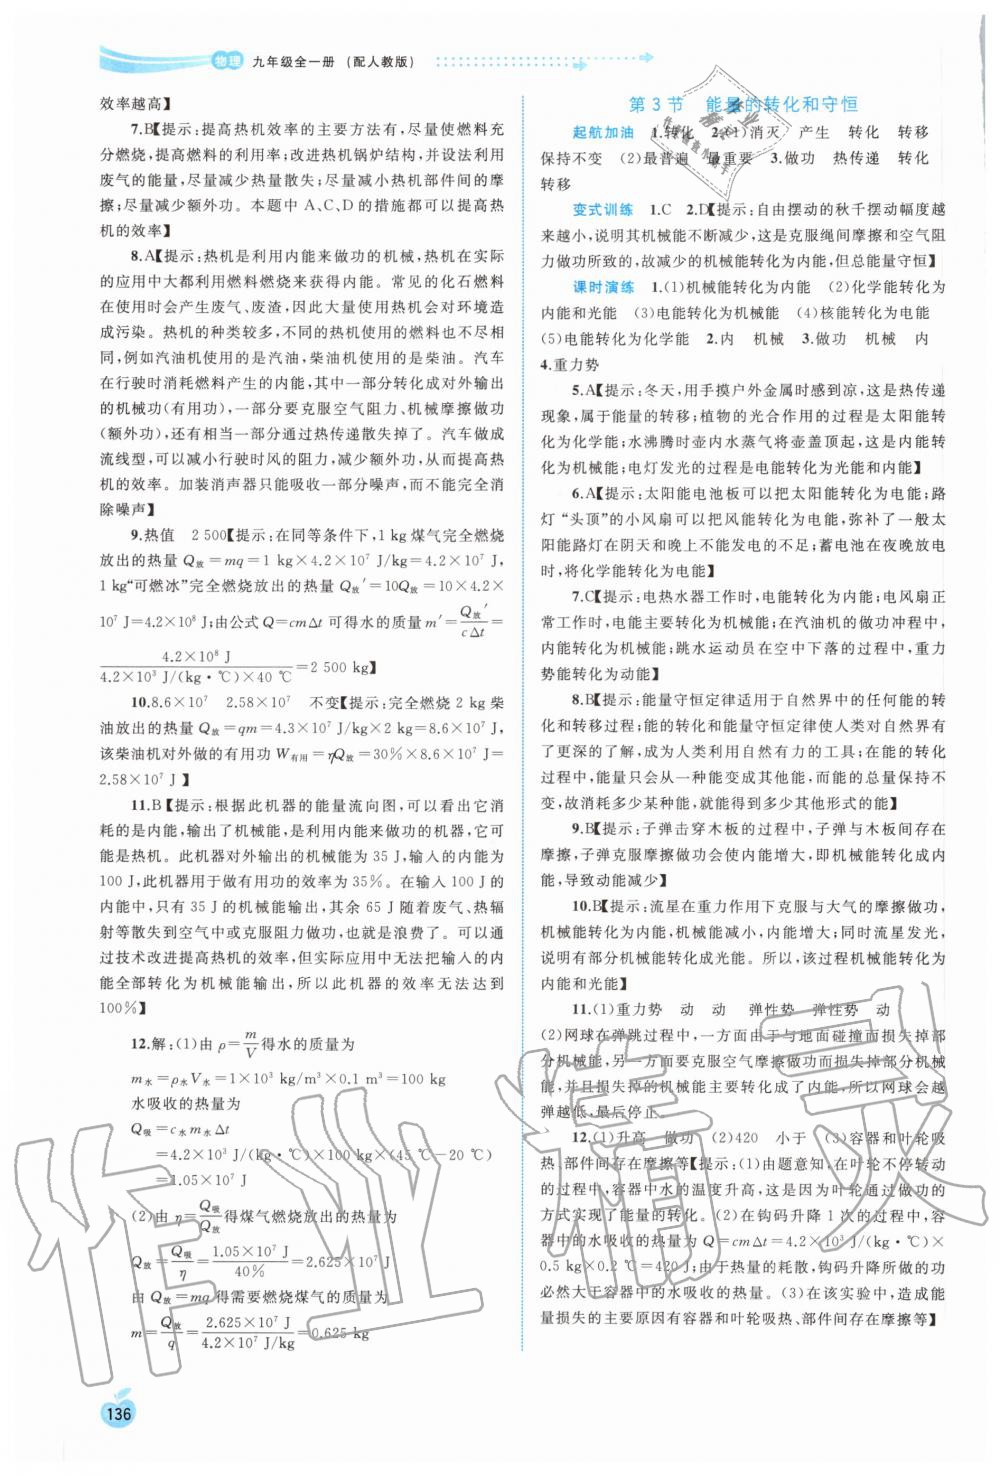 物理 九年级全一册 (配人教版)
效率越高】
7.B【提示:提高热机效率的主要方法有,尽量使燃料充
分燃烧,提高燃料的利用率;改进热机锅炉结构,并利用
废气的能量,尽量减少热量散失;尽量减小热机部件间的摩
擦;尽量减少额外功。本题中A、C、D的措施都可以提高热
机的效率】
8.A【提示:热机是利用内能来做功的机械,热机在实际
的应用中大都利用燃料燃烧来获得内能。常见的化石燃料
在使用时会产生废气、废渣,因此大量使用热机会对环境造
成污染。热机的种类较多,不同的热机使用的燃料也不尽相
同,例如汽油机使用的是汽油,柴油机使用的是柴油。汽车
在行驶时消耗燃料产生的内能,其中一部分转化成对外输出
的机械功(有用功),一部分要克服空气阻力、机械摩擦做功
(额外功),还有相当一部分通过热传递散失掉了。汽车做成
流线型,可以减小行驶时风的阻力,减少额外功,从而提高热
机的效率。加装消声器只能吸收一部分噪声,而不能完全消
除噪声】
9.热值 2 500【提示:在同等条件下,1 kg煤气完全燃烧
放出的热量 Q放=mq=1 kg×4.2×10⁷ J/kg=4.2×10⁷ J,
1 kg“可燃冰”完全燃烧放出的热量 Q放′=10Q放=10×4.2×
10⁷ J=4.2×10⁸ J;由公式 Q=cmΔt 可得水的质量 m′=Q放′/cΔt=
4.2×10⁸ J/4.2×10³ J/(kg·℃)×40 ℃=2 500 kg】
10.8.6×10⁷ 2.58×10⁷ 不变【提示:完全燃烧 2 kg 柴
油放出的热量 Q放=qm=4.3×10⁷ J/kg×2 kg=8.6×10⁷ J,
该柴油机对外做的有用功 W有用=ηQ放=30%×8.6×10⁷ J=
2.58×10⁷ J】
11.B【提示:根据此机器的能量流向图,可以看出它消
耗的是内能,输出了机械能,是利用内能来做功的机器,它可
能是热机。此机器对外输出的机械能为 35 J,输入的内能为
100 J,此机器用于做有用功的效率为35%。在输入100 J的
内能中,只有 35 J 的机械能输出,其余 65 J 随着废气、热辐
射等散失到空气中或克服阻力做功,也就是浪费了。可以通
过技术改进提高热机的效率,但实际应用中无法把输入的内
能全部转化为机械能输出,所以此机器的效率无法达到
100%】
12.解:(1)由 ρ=m/V得水的质量为
m水=ρ水V水=1×10³ kg/m³×0.1 m³=100 kg
水吸收的热量为
Q吸=c水m水Δt
=4.2×10³ J/(kg·℃)×100 kg×(45 ℃-20 ℃)
=1.05×10⁷ J
(2)由 η=Q吸/Q放得煤气燃烧放出的热量为
Q放=Q吸/η=1.05×10⁷ J/40%=2.625×10⁷ J
由 Q放=mq得需要燃烧煤气的质量为
m=Q放/q=2.625×10⁷ J/4.2×10⁷ J/kg=0.625 kg
136
第 3 节 能量的转化和守恒
起航加油 1.转化 2.(1)消灭 产生 转化 转移
保持不变 (2)最普遍 最重要 3.做功 热传递 转化
转移
变式训练 1.C 2.D【提示:自由摆动的秋千摆动幅度越
来越小,说明其机械能不断减少,这是克服绳间摩擦和空气阻
力做功所致的,故减少的机械能转化为内能,但总能量守恒】
课时演练 1.(1)机械能转化为内能 (2)化学能转化为
内能和光能 (3)电能转化为机械能 (4)核能转化为电能
(5)电能转化为化学能 2.内 机械 3.做功 机械 内
4.重力势
5.A【提示:冬天,用手摸户外金属时感到凉,这是热传递
现象,属于能量的转移;植物的光合作用的过程是太阳能转
化为化学能;水沸腾时壶内水蒸气将壶盖顶起,这是内能转
化为机械能;电灯发光的过程是电能转化为光能和内能】
6.A【提示:太阳能电池板可以把太阳能转化为电能;路
灯“头顶”的小风扇可以把风能转化为电能,弥补了一般太
阳能路灯在阴天和晚上不能发电的不足;蓄电池在夜晚放电
时,将化学能转化为电能】
7.C【提示:电热水器工作时,电能转化为内能;电风扇正
常工作时,电能主要转化为机械能;在汽油机的做功冲程中,
内能转化为机械能;跳水运动员在空中下落的过程中,重力
势能转化为动能】
8.B【提示:能量守恒定律适用于自然界中的任何能的转
化和转移过程;能的转化和能量守恒定律使人类对自然界有
了更深的了解,成为人类利用自然有力的工具;在能的转化
过程中,能量只会从一种能变成其他能,而能的总量保持不
变,故消耗多少某种能,就能得到多少其他形式的能】
9.B【提示:子弹击穿木板的过程中,子弹与木板间存在
摩擦,子弹克服摩擦做功会使内能增大,即机械能转化成内
能,导致动能减少】
10.B【提示:流星在重力作用下克服与大气的摩擦做功,
机械能转化为内能,机械能减小,内能增大;同时流星发光,
说明有部分机械能转化成光能。所以,该过程机械能转化为
内能和光能】
11.(1)重力势 动 动 弹性势 弹性势 动
(2)网球在弹跳过程中,一方面由于与地面碰撞而损失掉部
分机械能,另一方面要克服空气摩擦做功而损失掉部分机械
能,并且损失掉的机械能主要转化成了内能,所以网球会越
弹越低,最后停止。
12.(1)升高 做功 (2)420 小于 (3)容器和叶轮吸
热、部件间存在摩擦等【提示:(1)由题意知,在叶轮不停转动
的过程中,容器中水的温度升高,这是因为叶轮通过做功的
方式实现了能量的转化。(2)在钩码升降 1 次的过程中,容
器中的水吸收的热量为 Q=cmΔt=4.2×10³ J/(kg·℃)×
0.5 kg×0.2 ℃=420 J;由于热量的耗散,钩码升降所做的功
必然大于容器中的水吸收的热量。(3)在该实验中,造成能
量损失的主要原因有容器和叶轮吸热、部件间存在摩擦等】
作业精灵